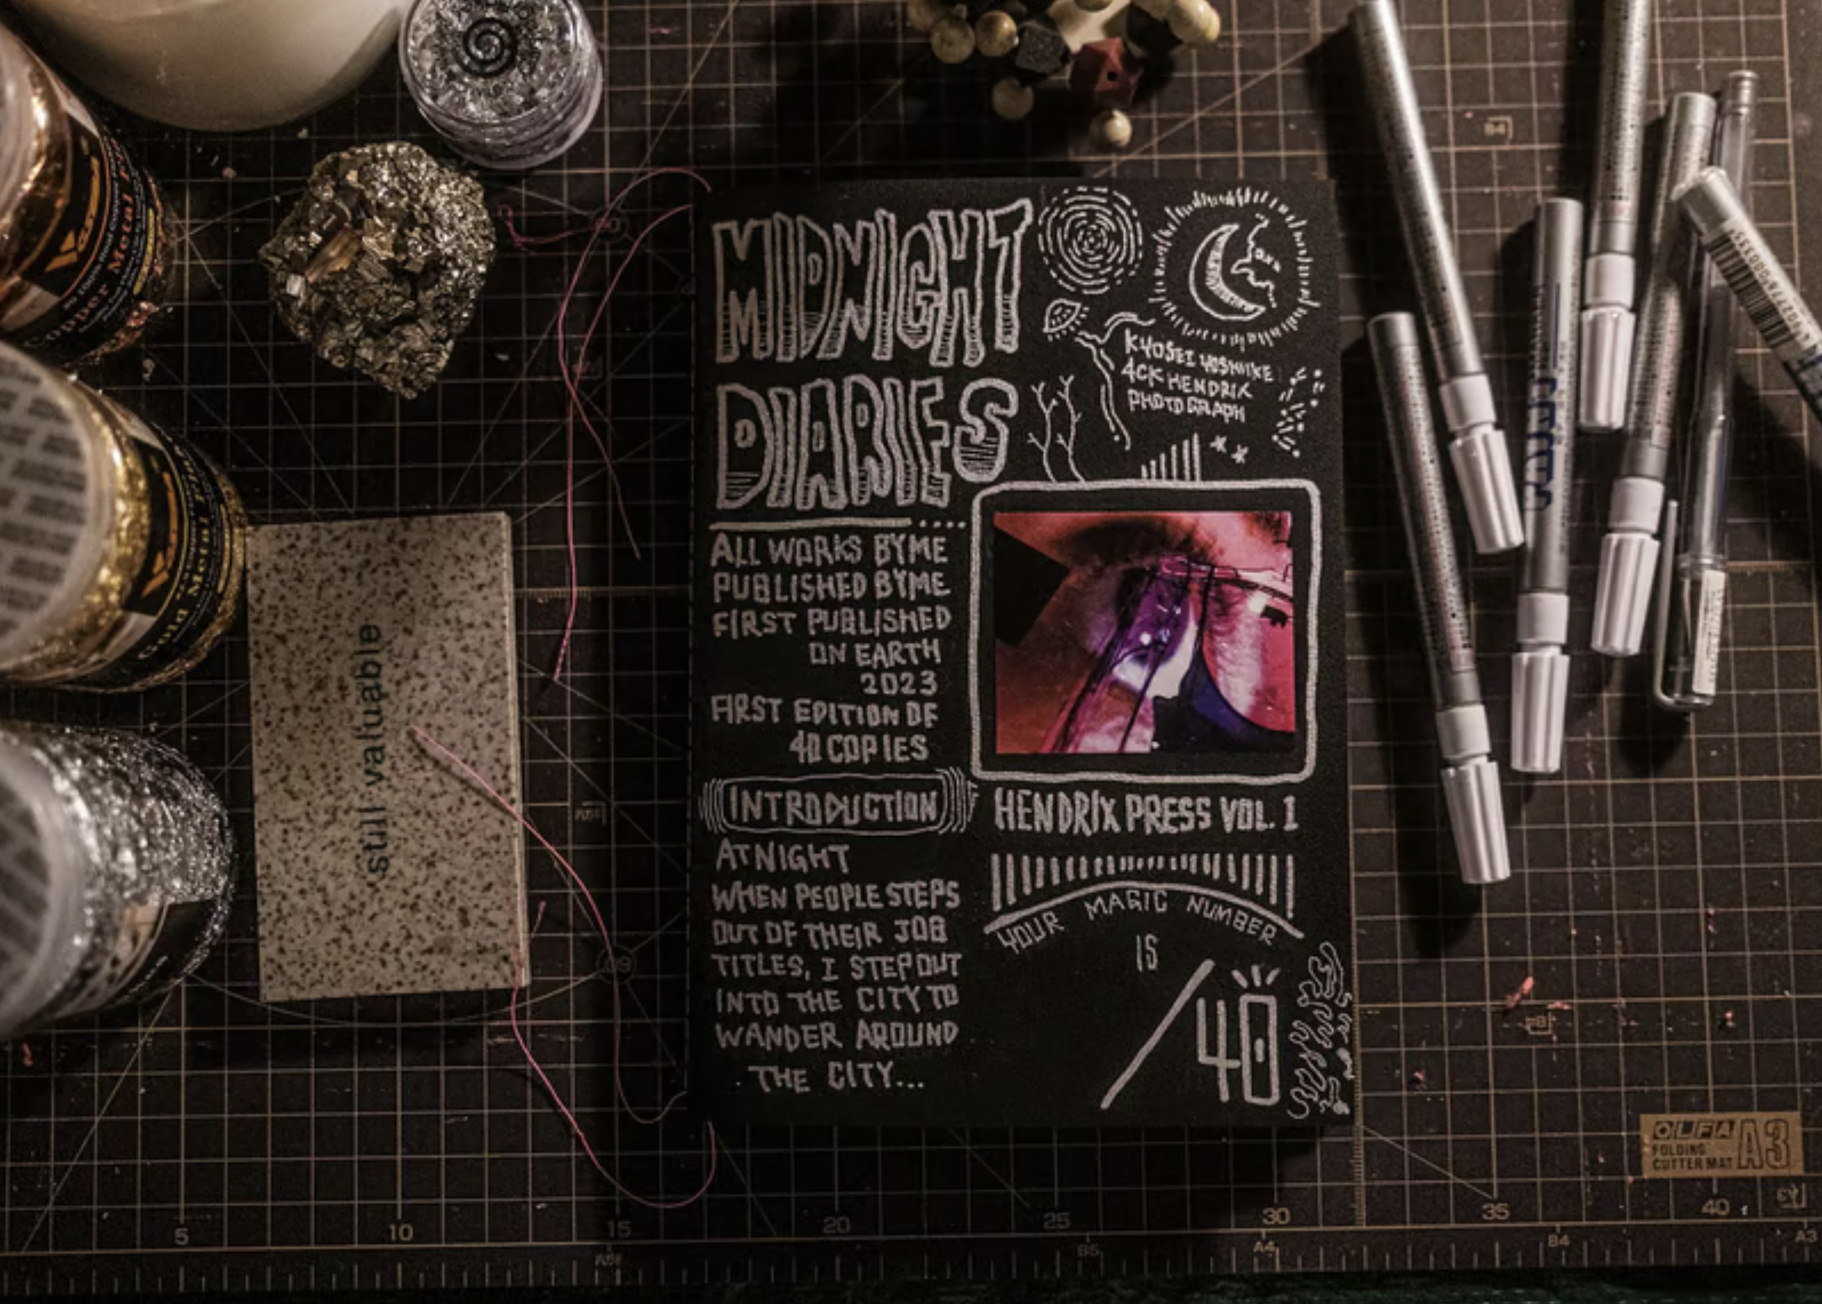 MIDNIGHT
DIARIES
KYOSEI YOSHIIKE
4CK HENDRIX
PHOTOGRAPH
ALL WORKS BY ME
PUBLISHED BY ME
FIRST PUBLISHED
ON EARTH
2023
FIRST EDITION OF
40 COPIES
INTRODUCTION
AT NIGHT
WHEN PEOPLE STEPS
OUT OF THEIR JOB
TITLES, I STEP OUT
INTO THE CITY TO
WANDER AROUND
THE CITY...
HENDRIX PRESS VOL. 1
YOUR MAGIC NUMBER
IS
/40
still valuable
Copper Metal
Gold Metal
OLFA A3
FOLDING
CUTTER MAT
5 10 15 20 25 30 35 40
B5 A4 B4 A3